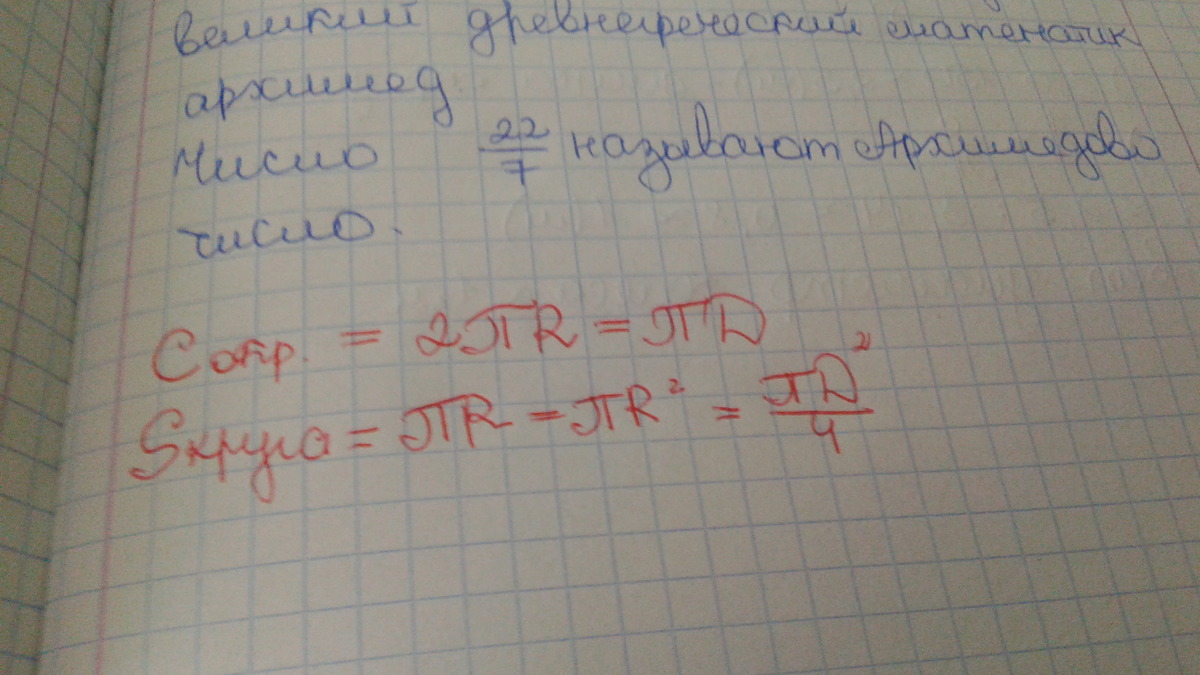 великий древнегреческий математик
архимед
Число 22/7 называют Архимедово
число.
Cокр. = 2πR = πD
Sкруга = πR = πR² = πD²/4